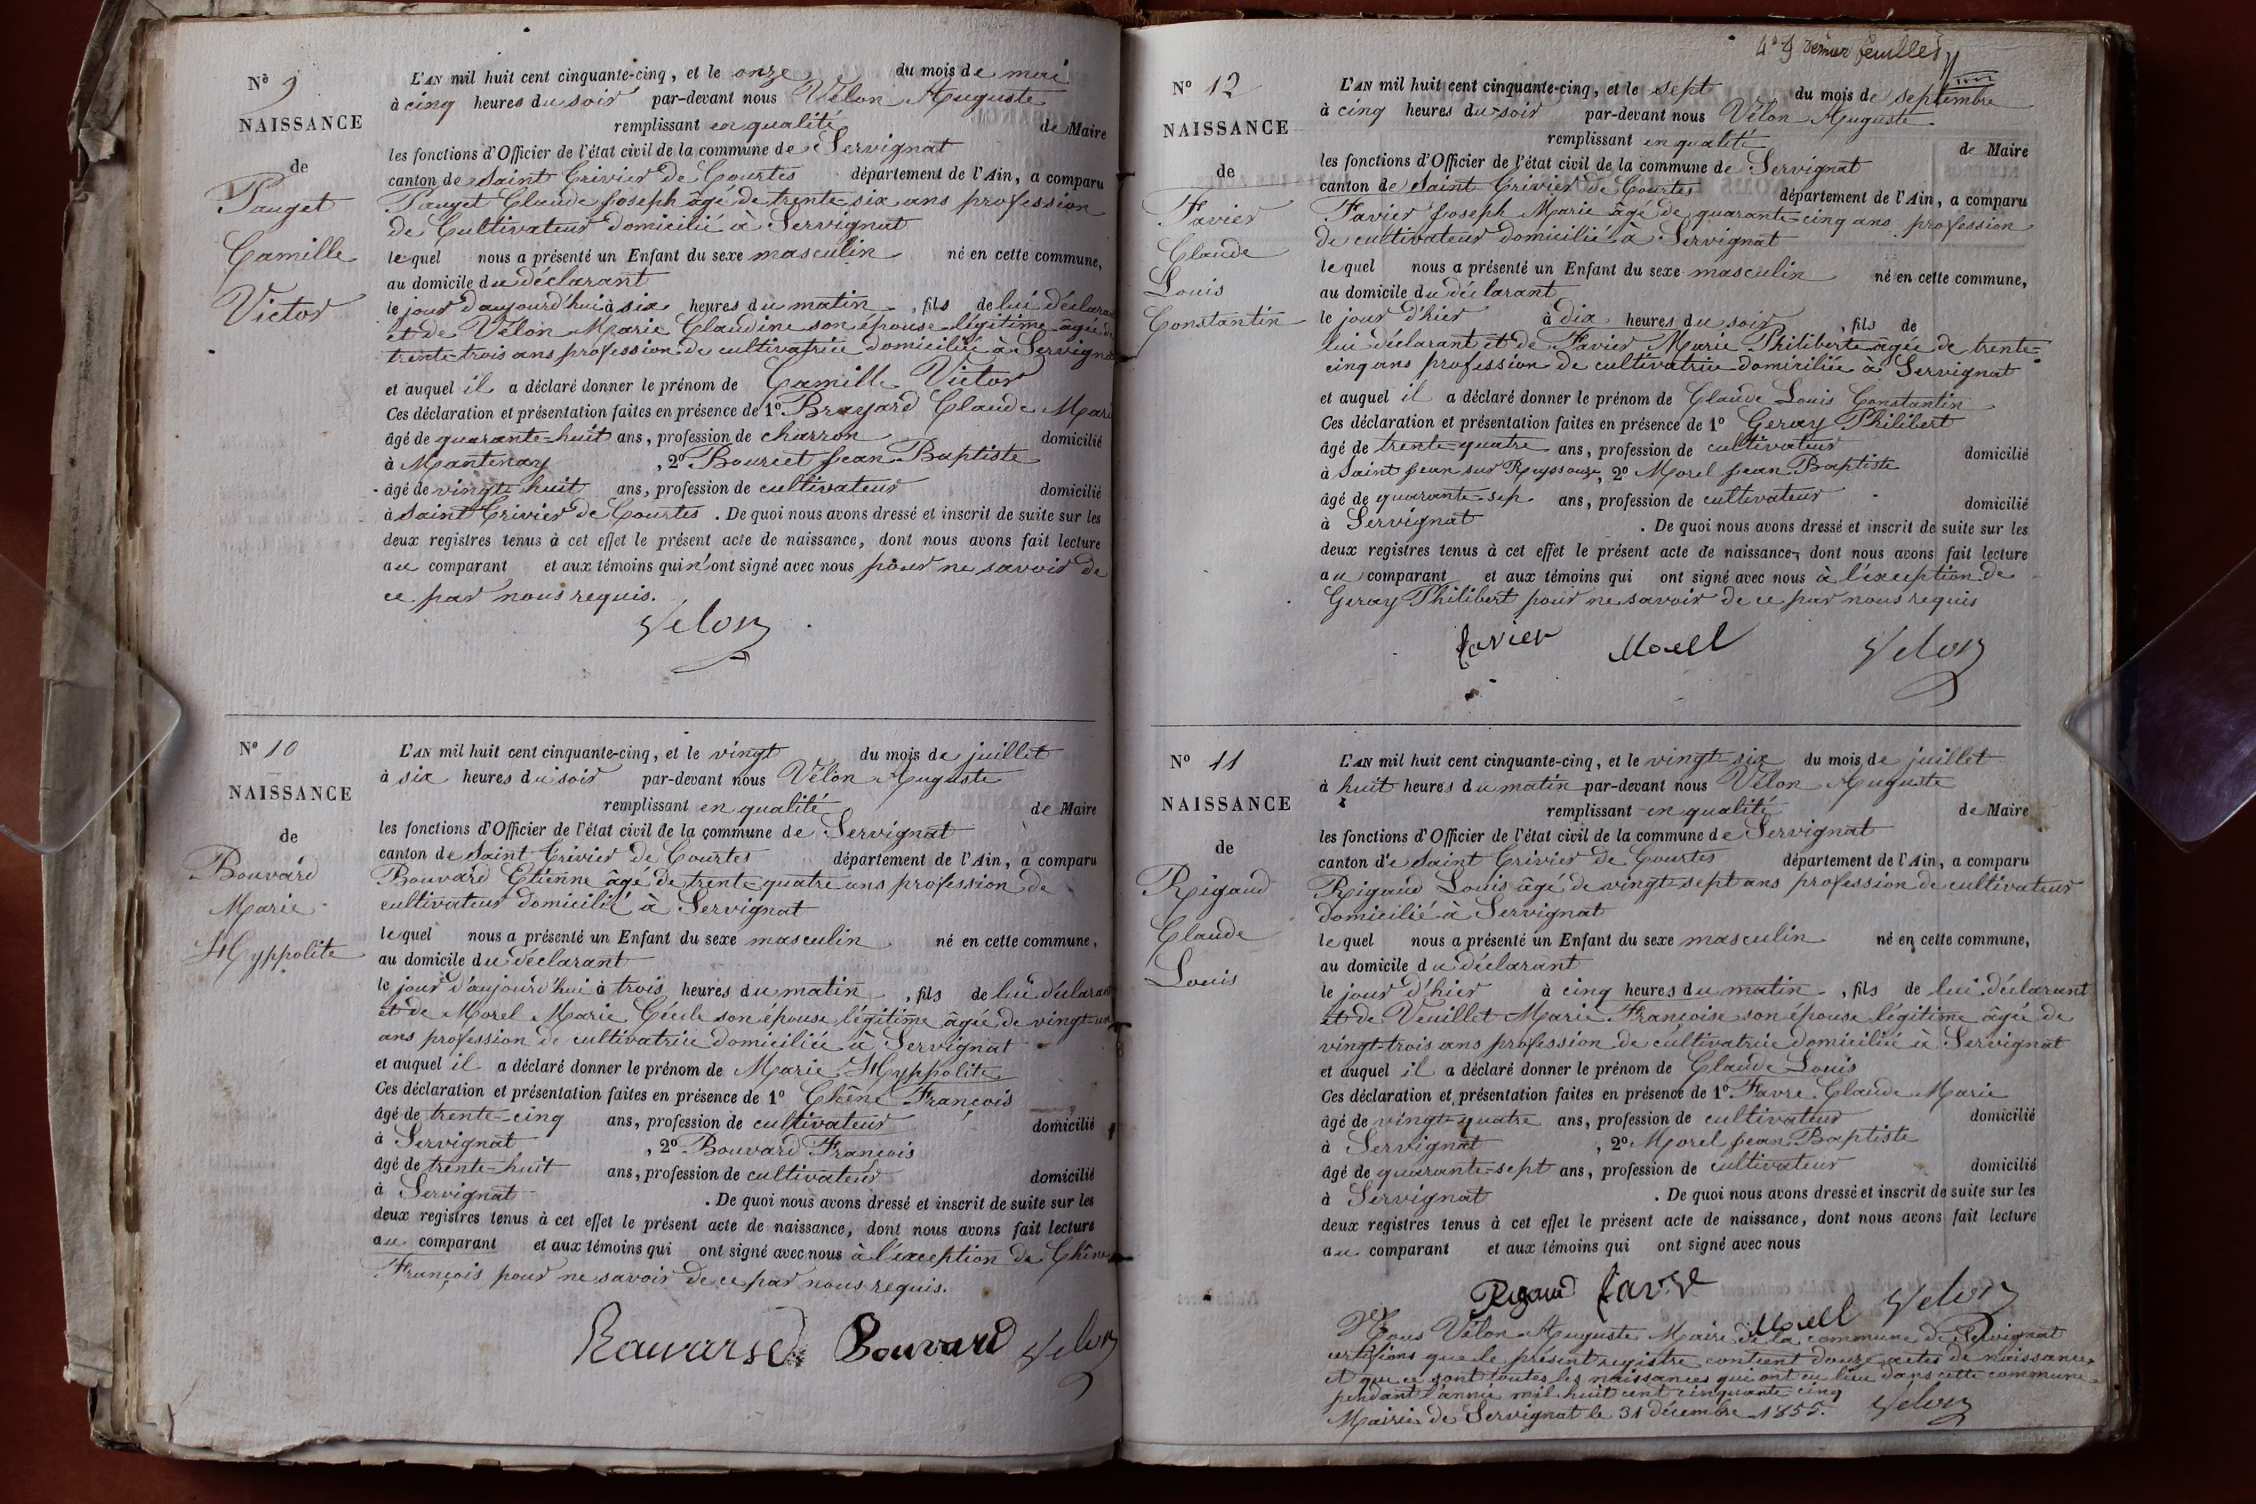 Nº 9
NAISSANCE
de
Pauget
Camille
Victor
L'AN mil huit cent cinquante-cinq, et le onze du mois de mai
à cinq heures du soir par-devant nous Vélon Auguste
remplissant en qualité de Maire
les fonctions d'Officier de l'état civil de la commune de Servignat
canton de Saint Trivier de Courtes département de l'Ain, a comparu
Pauget Claude Joseph âgé de trente-six ans profession
de Cultivateur domicilié à Servignat
lequel nous a présenté un Enfant du sexe masculin né en cette commune,
au domicile du déclarant
le jour d'aujourd'hui à six heures du matin, fils de lui déclara
et de Vélon Marie Claudine son épouse légitime âgée de
trente-trois ans profession de cultivatrice domiciliée à Servigna
et auquel il a déclaré donner le prénom de Camille Victor
Ces déclaration et présentation faites en présence de 1º Brayard Claude Mari
âgé de quarante-huit ans, profession de charron domicilié
à Mantenay, 2º Bourcet Jean Baptiste
âgé de vingt-huit ans, profession de cultivateur domicilié
à Saint Trivier de Courtes. De quoi nous avons dressé et inscrit de suite sur les
deux registres tenus à cet effet le présent acte de naissance, dont nous avons fait lecture
au comparant et aux témoins qui n'ont signé avec nous pour ne savoir de
ce par nous requis.
Velon
Nº 10
NAISSANCE
de
Bouvard
Marie
Hyppolite
L'AN mil huit cent cinquante-cinq, et le vingt du mois de juillet
à six heures du soir par-devant nous Vélon Auguste
remplissant en qualité de Maire
les fonctions d'Officier de l'état civil de la commune de Servignat
canton de Saint Trivier de Courtes département de l'Ain, a comparu
Bouvard Etienne âgé de trente-quatre ans profession de
cultivateur domicilié à Servignat
lequel nous a présenté un Enfant du sexe masculin né en cette commune,
au domicile du déclarant
le jour d'aujourd'hui à trois heures du matin, fils de lui déclarant
et de Morel Marie Cécile son épouse légitime âgée de vingt-un
ans profession de cultivatrice domiciliée à Servignat
et auquel il a déclaré donner le prénom de Marie Hyppolite
Ces déclaration et présentation faites en présence de 1º Chêne François
âgé de trente-cinq ans, profession de cultivateur domicilié
à Servignat, 2º Bouvard François
âgé de trente-huit ans, profession de cultivateur domicilié
à Servignat. De quoi nous avons dressé et inscrit de suite sur les
deux registres tenus à cet effet le présent acte de naissance, dont nous avons fait lecture
au comparant et aux témoins qui ont signé avec nous à l'exception de Chêne
François pour ne savoir de ce par nous requis.
Bouvard Velon
4e dernier feuillet
Nº 12
NAISSANCE
de
Favier
Claude
Louis
Constantin
L'AN mil huit cent cinquante-cinq, et le sept du mois de septembre
à cinq heures du soir par-devant nous Vélon Auguste
remplissant en qualité de Maire
les fonctions d'Officier de l'état civil de la commune de Servignat
canton de Saint Trivier de Courtes département de l'Ain, a comparu
Favier Joseph Marie âgé de quarante-cinq ans profession
de cultivateur domicilié à Servignat
lequel nous a présenté un Enfant du sexe masculin né en cette commune,
au domicile du déclarant
le jour d'hier à dix heures du soir, fils de
lui déclarant et de Favier Marie Philiberte âgée de trente-
cinq ans profession de cultivatrice domiciliée à Servignat
et auquel il a déclaré donner le prénom de Claude Louis Constantin
Ces déclaration et présentation faites en présence de 1º Geray Philibert
âgé de trente-quatre ans, profession de cultivateur domicilié
à Saint Jean sur Reyssouze, 2º Morel Jean Baptiste
âgé de quarante-sep ans, profession de cultivateur domicilié
à Servignat. De quoi nous avons dressé et inscrit de suite sur les
deux registres tenus à cet effet le présent acte de naissance, dont nous avons fait lecture
au comparant et aux témoins qui ont signé avec nous à l'exception de
Geray Philibert pour ne savoir de ce par nous requis
favier Morell Velon
Nº 11
NAISSANCE
de
Rigaud
Claude
Louis
L'AN mil huit cent cinquante-cinq, et le vingt-six du mois de juillet
à huit heures du matin par-devant nous Vélon Auguste
remplissant en qualité de Maire
les fonctions d'Officier de l'état civil de la commune de Servignat
canton de Saint Trivier de Courtes département de l'Ain, a comparu
Rigaud Louis âgé de vingt-sept ans profession de cultivateur
domicilié à Servignat
lequel nous a présenté un Enfant du sexe masculin né en cette commune,
au domicile du déclarant
le jour d'hier à cinq heures du matin, fils de lui déclarant
et de Veuillet Marie Françoise son épouse légitime âgée de
vingt-trois ans profession de cultivatrice domiciliée à Servignat
et auquel il a déclaré donner le prénom de Claude Louis
Ces déclaration et présentation faites en présence de 1º Favre Claude Marie
âgé de vingt-quatre ans, profession de cultivateur domicilié
à Servignat, 2º Morel Jean Baptiste
âgé de quarante-sept ans, profession de cultivateur domicilié
à Servignat. De quoi nous avons dressé et inscrit de suite sur les
deux registres tenus à cet effet le présent acte de naissance, dont nous avons fait lecture
au comparant et aux témoins qui ont signé avec nous
Rigaud favre Morell Velon
Nous Vélon Auguste Maire de la commune de Servignat
certifions que le présent registre contient douze actes de naissance
et que ce sont toutes les naissances qui ont eu lieu dans cette commune
pendant l'année mil huit cent cinquante-cinq
Mairie de Servignat le 31 décembre 1855. Velon